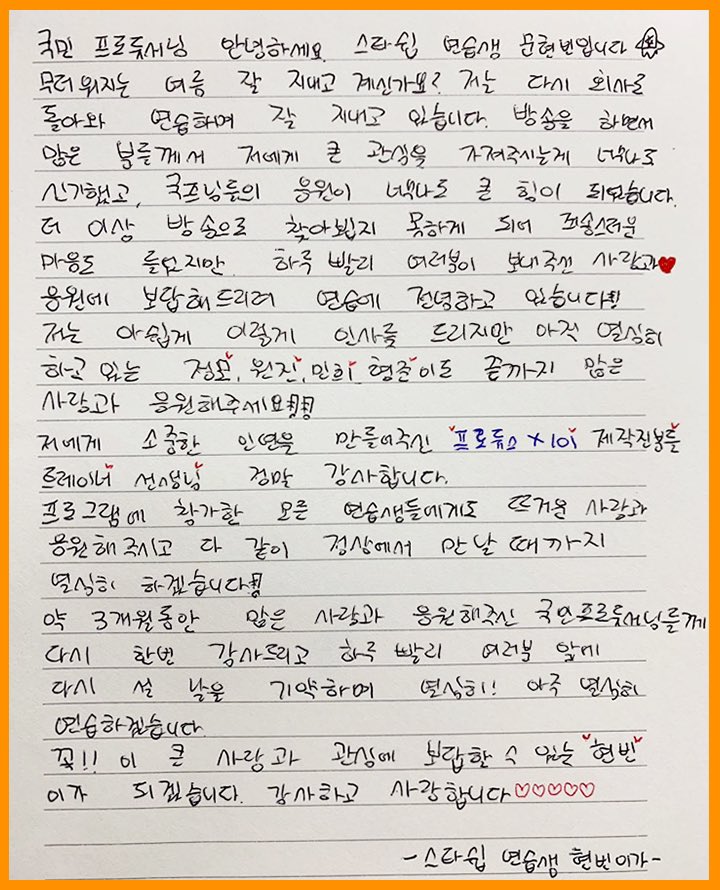 국민 프로듀서님 안녕하세요. 스타쉽 연습생 문현빈입니다
무더워지는 여름 잘 지내고 계신가요? 저는 다시 회사로
돌아와 연습하며 잘 지내고 있습니다. 방송을 하면서
많은 분들께서 저에게 큰 관심을 가져주시는게 너무나도
신기했고, 국프님들의 응원이 너무나도 큰 힘이 되었습니다.
더 이상 방송으로 찾아뵙지 못하게 되어 죄송스러운
마음도 들었지만, 하루 빨리 여러분이 보내주신 사랑과♥
응원에 보답해드리려 연습에 전념하고 있습니다!!
저는 아쉽게 이렇게 인사를 드리지만 아직 열심히
하고 있는 정모, 원진, 민희, 형준이도 끝까지 많은
사랑과 응원해주세요!!!
저에게 소중한 인연을 만들어주신 "프로듀스 X 101" 제작진분들
트레이너 선생님 정말 감사합니다.
프로그램에 참가한 모든 연습생들에게도 뜨거운 사랑과
응원해주시고 다 같이 정상에서 만날 때까지
열심히 하겠습니다!!
약 3개월동안 많은 사랑과 응원해주신 국민프로듀서님들께
다시 한번 감사드리고 하루 빨리 여러분 앞에
다시 설 날을 기약하며 열심히! 아주 열심히
연습하겠습니다.
꼭!! 이 큰 사랑과 관심에 보답할 수 있는 "현빈"
이가 되겠습니다. 감사하고 사랑합니다♡♡♡♡♡
-스타쉽 연습생 현빈이가-